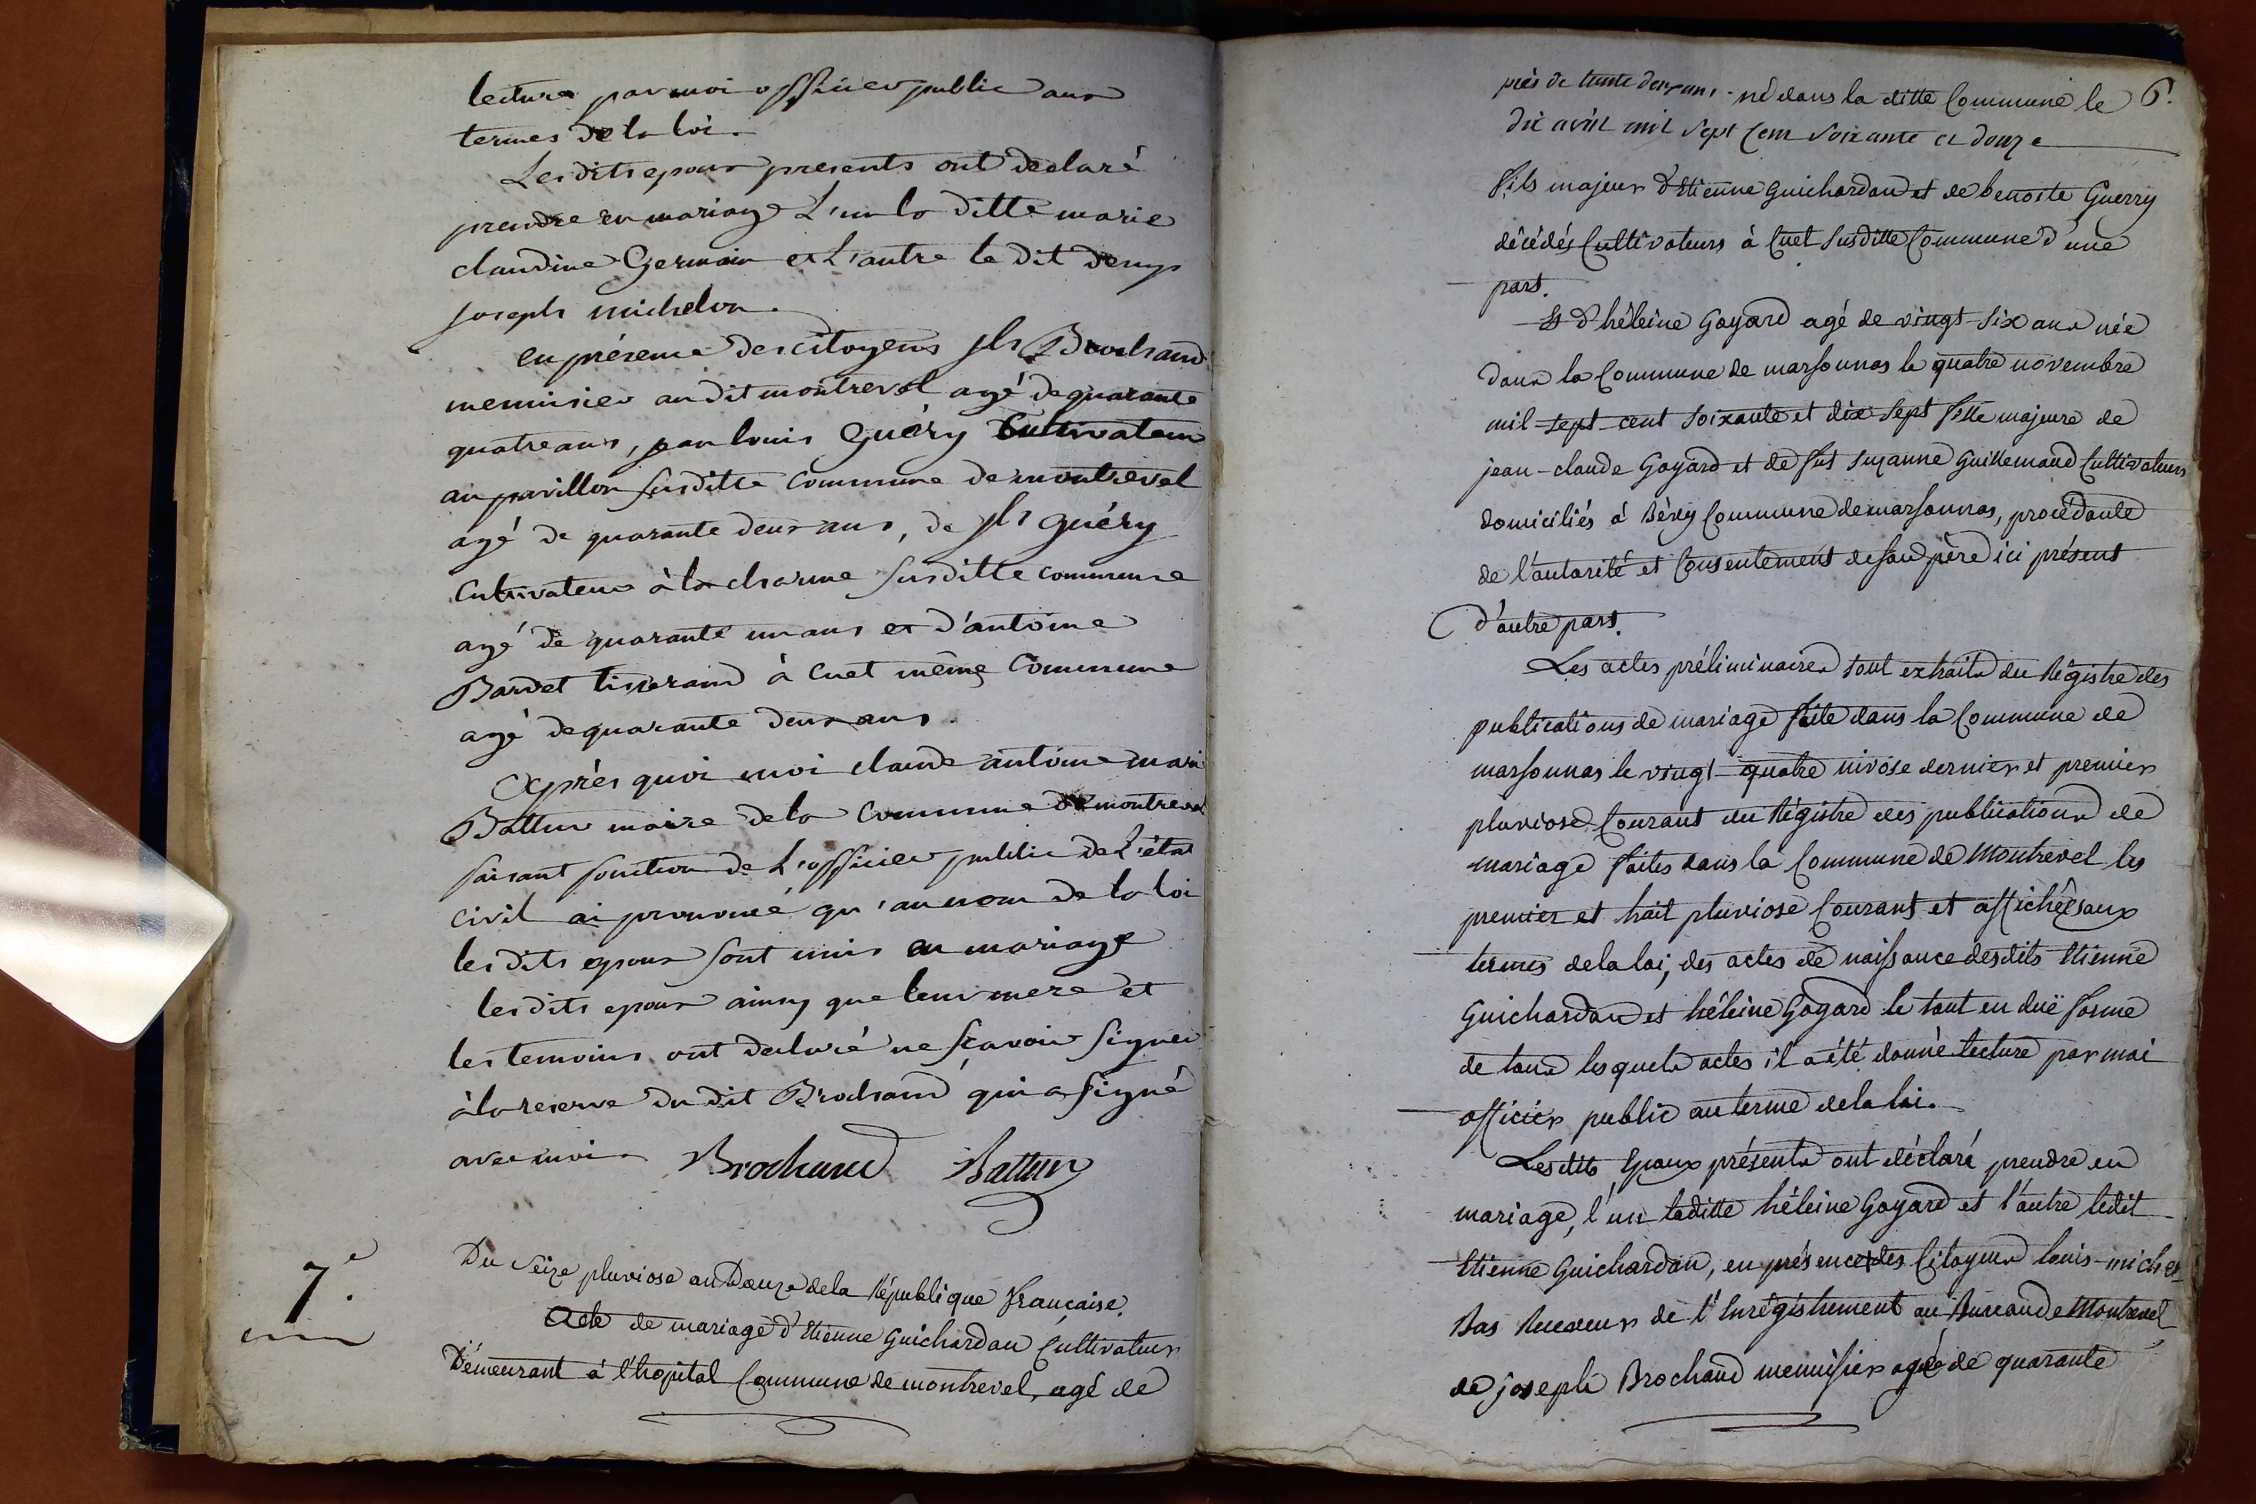 lecture par moi officier public aux
termes de la loi.
Les dits epoux presents ont declaré
prendre en mariage L'un la ditte marie
claudine Germain et L'autre le dit denys
joseph michelon.
en présence des citoyens jh Brochand
menuisier au dit montrevel agé de quarante
quatre ans, jean louis Guéry Cultivateur
au pavillon susditte commune de montrevel
agé de quarante deux ans, de jh guéry
Cultivateur à la charme susditte commune
agé de quarante un ans et d'antoine
Bardet tisserand à Cuet même Commune
agé de quarante deux ans.
Après quoi moi claude antoine marie
Battur maire de la Commune de montrevel
faisant fonction de L'officier public de L'état
civil ai prononcé qu'au nom de la loi
les dits epoux sont unis en mariage
les dits epoux ainsy que leur mere et
les temoins ont declaré ne sçavoir signer
à la reserve du dit Brochand qui a signé
avec moi. Brochand Battur
7e.
Du Seize pluviose an Douze de la République française.
Acte de mariage d'Etienne Guichardan Cultivateur
Demeurant à l'hopital Commune de montrevel, agé de
6.
près de trente deux ans, né dans la ditte Commune le
dix avril mil sept cent soixante et douze
fils majeur d'Etienne Guichardan et de benoite Guerry
décédés Cultivateurs à Cuet susditte Commune d'une
part.
Et d'héleine Goyard agé de vingt-six ans née
dans la Commune de marsonnas le quatre novembre
mil sept cent soixante et dix sept fille majeure de
jean-claude Goyard et de fut suzanne Guillemaud Cultivateurs
domiciliés à Béréy Commune de marsonnas, procédante
de l'autorité et Consentement de son père ici présent
d'autre part.
Les actes préliminaires sont extraits du Régistre des
publications de mariage faite dans la Commune de
marsonnas le vingt-quatre nivose dernier et premier
pluviose Courant du Régistre des publications de
mariage faites dans la Commune de Montrevel les
premier et huit pluviose Courant et affichées aux
termes de la loi, des actes de naissance desdits Etienne
Guichardan et héleine Goyard le tout en duë forme
de tous lesquels actes il a été donné lecture par moi
officier public au terme de la loi.
Lesdits Epoux présents ont déclaré prendre en
mariage, l'un laditte héleine Goyard et l'autre ledit
Etienne Guichardan, en présence des Citoyens louis-michel
Bas Receveur de l'Enregistrement au Bureau de Montrevel,
de joseph Brochand menuisier agé de quarante